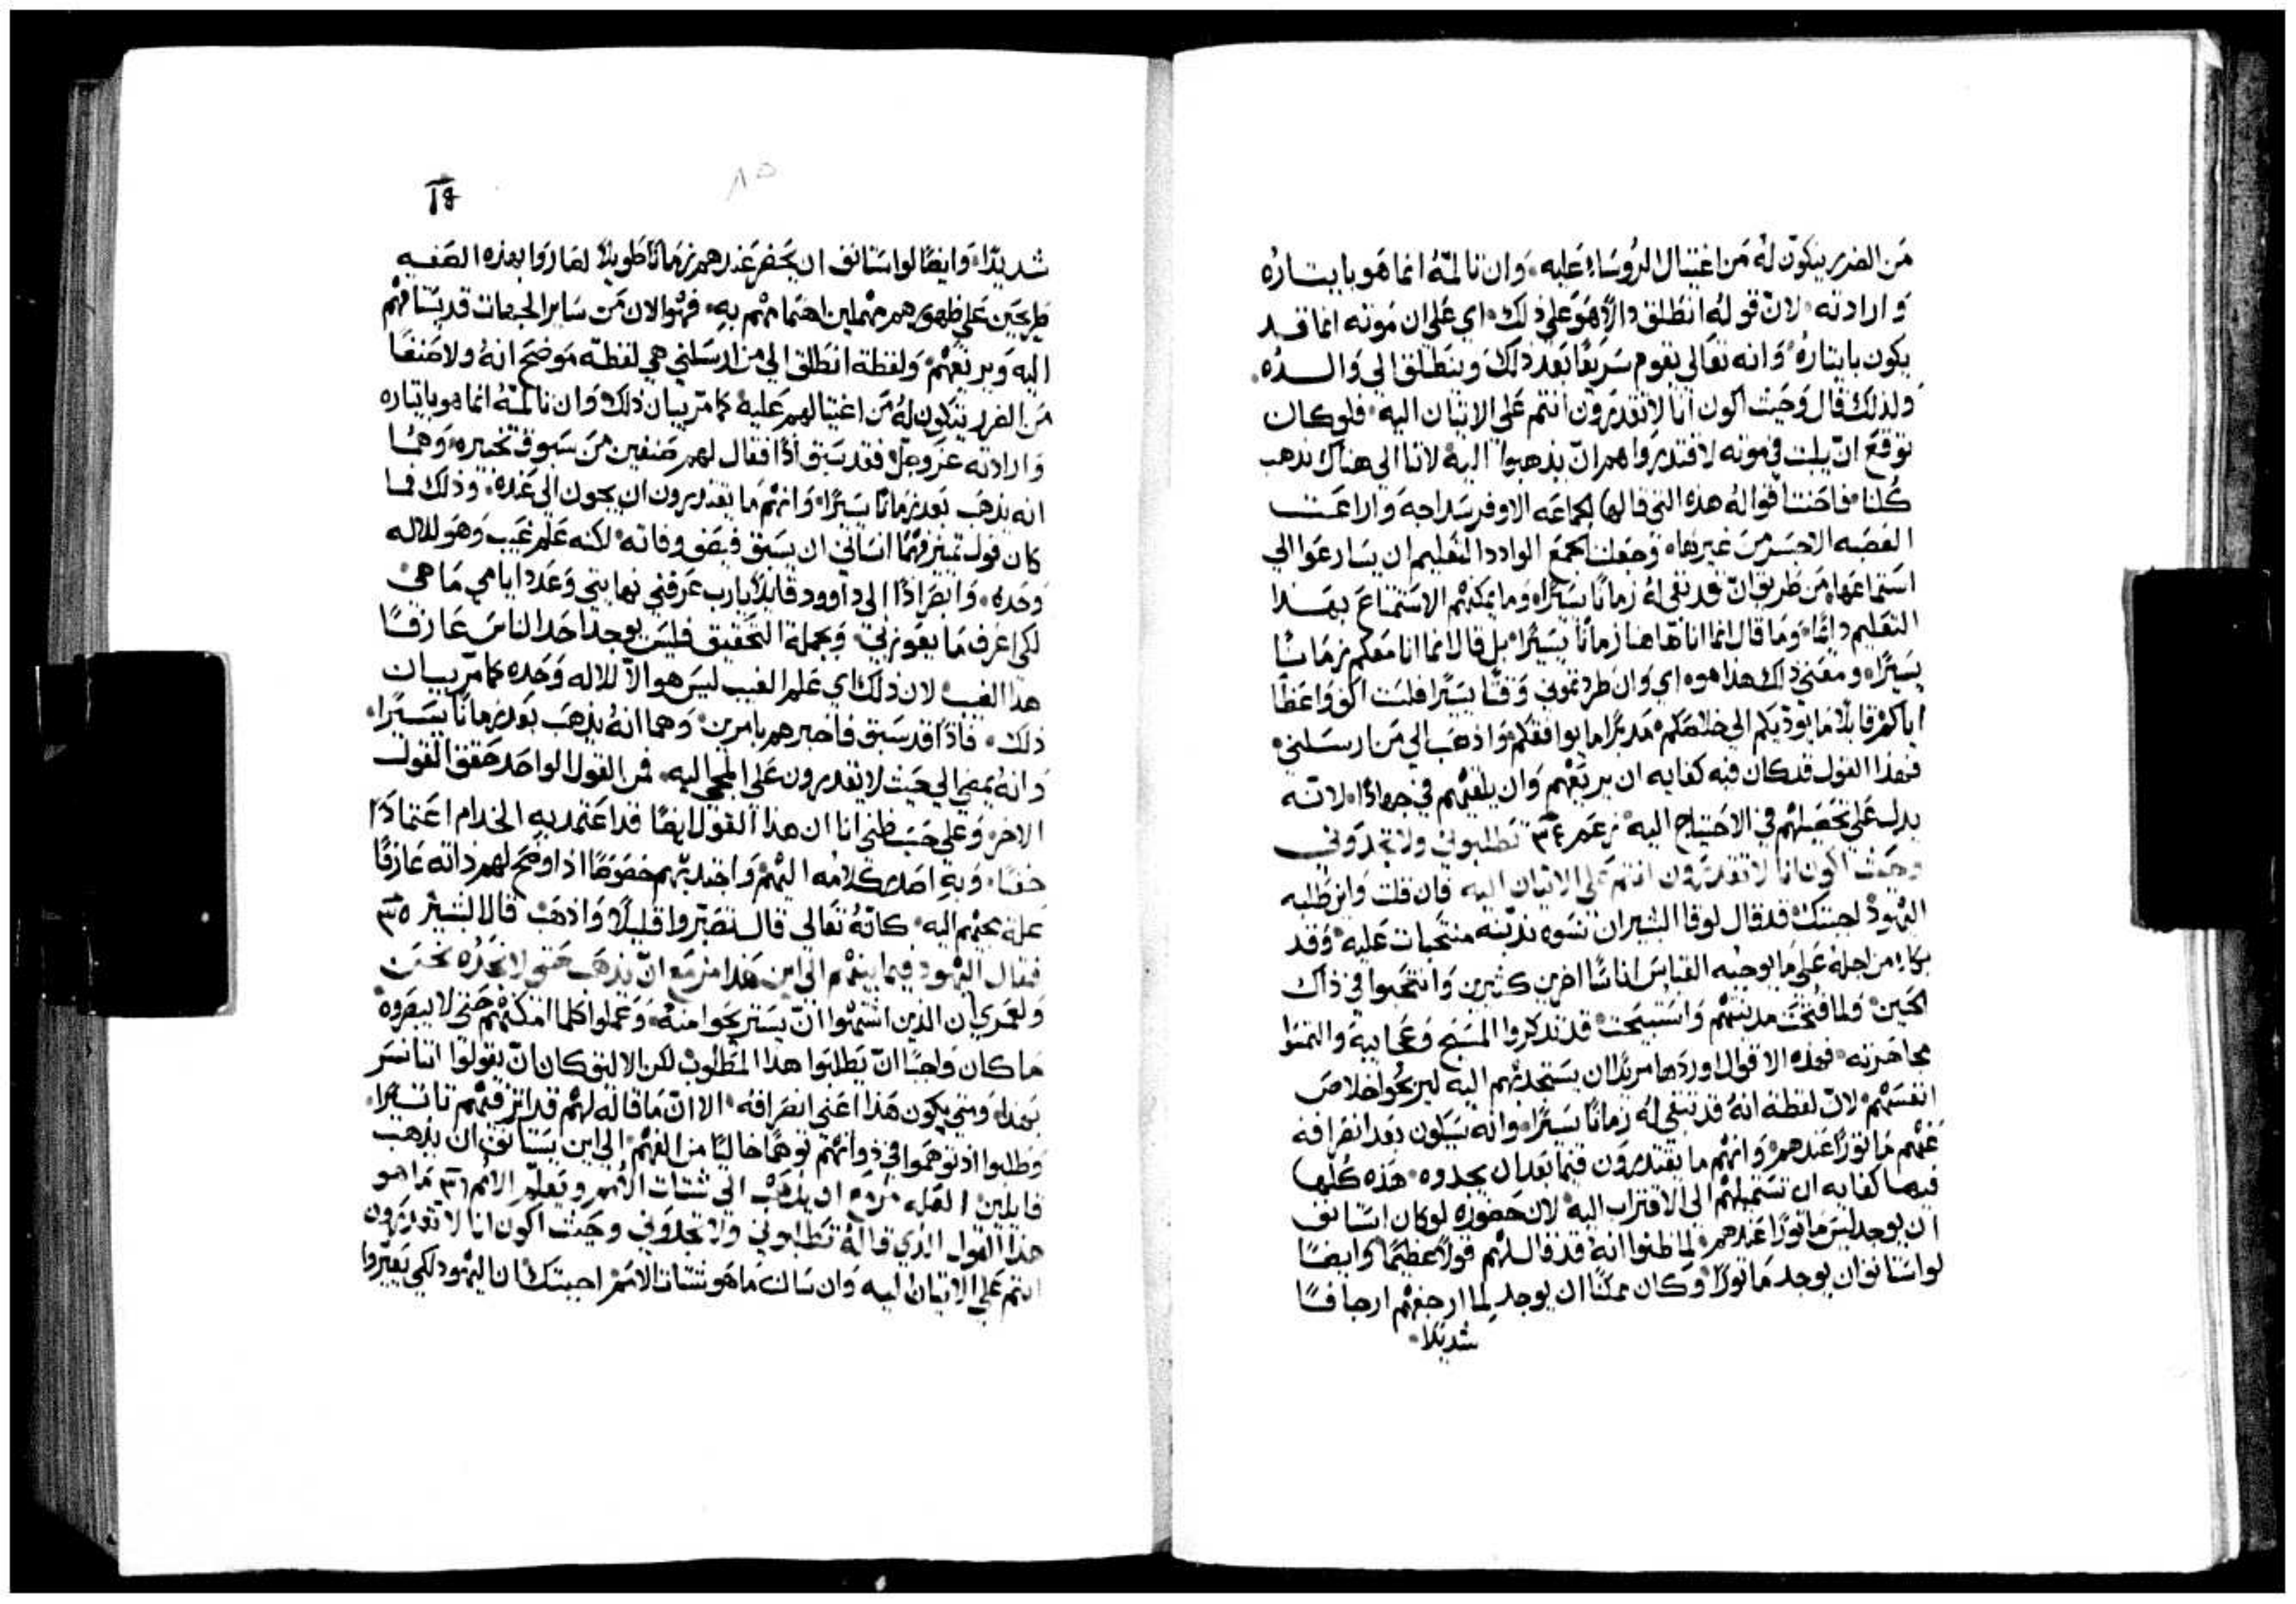 من الضرر يتكون له من اغتيال الروساء عليه، وان تالمه انما هو بايتاره
وارادته، لان قوله انطلق دالاً هو على ذلك، اي على ان موته انما قد
يكون بايتاره، وانه تعالى يقوم سريعًا بعد ذلك وينطلق الي والده.
ولذلك قال وحيث اكون انا لا تقدرون انتم على الاتيان اليه، فلو كان
توقع ان يلبث في موته لاقتدروا هم ان يذهبوا اليه لاننا الي هناك نذهب
كلنا، فاحنت اقواله هذه التي قالها الجماعه الاوفر سداجه واراعت
الغصبه الاجسر من غيرها، وجعلت الجمع الوادد التعليم ان يسارعوا الي
استماعها، من طريق ان قد بقي له زمانًا يسيرًا، وما يمكنهم الاستمتاع بهذا
التعليم دايمًا، وما قال انما انا هاهنا زمانًا يسيرًا، بل قال انما انا معكم زمانًا
يسيرًا، ومعني ذلك هذا هو، اي وان طردتموني وقتًا يسيرًا فلست اكف واعظًا
اياكم، قايلًا ما يوديكم الي خلاصكم، مدبرًا ما يوافقكم، واذهب الي من ارسلني،
فهذا القول قد كان فيه كفايه ان يريعهم وان يلقيهم في جهاد، لانه
يدل على تحصيلهم في الاحتياج اليه، زعم ٣٤ تطلبوني ولا تجدوني
وحيث اكون انا لا تقدرون انتم على الاتيان اليه فان قلت واين طلبه
اليهود اجبتك قد قال لوقا البشير ان نسوه ندبنه منتحبات عليه، وقد
بكاه من اجله على ما يوجبه القياس اناسًا اخرين كثيرين وانتحبوا في ذاك
الحين، ولما فتحت مدينتهم واستبيحت، قد تذكروا المسيح وعجايبه والتمسوا
محاضرته، فهذه الاقوال اوردها مريدًا ان يستجذبهم اليه ليربحوا خلاص
انفسهم، لان لفظة انه قد تبقي له زمانًا يسيرًا، وانه سيكون بعد انصرافه
عنهم ماتورًا عندهم، وانهم ما يقتدرون فيما بعد ان يجدوه، هذه كلها
فيها كفايه ان تستميلهم الي الاقتراب اليه، لان حضوره لو كان استانف
ان يوجد ليس ماتورًا عندهم، لما ظنوا انه قد قال لهم قولًا عظيمًا، وايضًا
لو استانف ان يوجد ماتورًا وكان ممكنًا ان يوجد لما ارجفهم ارجافًا
شديدًا.
شديدًا، وايضًا لو استانف ان يحضر عندهم زمانًا طويلًا لصاروا بهذه الصفه
طريحين على ظهورهم مهملين اهتمامهم به، فهو الان من ساير الجهات قد يستافهم
اليه ويريعهم، ولفظة انطلق الي من ارسلني هي لفظة موضح انه ولا صنفًا
من الضرر يتكون له من اغتيالهم عليه، كما مر بيان ذلك، وان تالمه انما هو بايتاره
وارادته عز وجل، فقد سبق اذًا فقال لهم صنفين من سوق تخبيره، وهما
انه يذهب بعد زمانًا يسيرًا، وانهم ما يقتدرون ان يجون الي عنده، وذلك فما
كان قول تميز فهمًا انساني ان يسبق فيصف وفاته، لكنه علم غيب وهو للاله
وحده، وانظر اذًا الي داوود قايلًا يارب عرفني نهايتي وعدد ايامي ما هي
لكي اعرف ما يعوزني، وبجملة التحقيق فليس يوجد احد الناس عارفًا
هذا الغيب، لان ذلك اي علم الغيب ليس هو الا للاله وحده كما مر بيان
ذلك، فاذًا قد سبق فاخبرهم بامرين، وهما انه يذهب بعد زمانًا يسيرًا،
وانه يمضي الي حيث لا يقدرون على المجي اليه، فمن القول الواحد حقق القول
الاخر، وعلى حسب ظني انا ان هذا القول ايضًا قد اعتمد به الخدام اعتمادًا
خفيًا، وبه اصدر كلامه اليهم، واجتذبهم خصوصًا اذ اوضح لهم ذاته عارفًا
علة مجيهم اليه، كانه تعالى قال تصبروا قليلًا واذهب، قال البشير ٣٥
فقال اليهود فيما بينهم الي اين هذا مزمع ان يذهب حتى لا نجده نحن
ولعمري ان الذين اشتهوا ان يستريحوا منه، وعملوا كلما امكنهم حتى لا يبصروه
ما كان واجبًا ان يطلبوا هذا المطلوب لكن الاليق كان ان يقولوا اننا نسر
بهذا، ومتي يكون هذا اعني انصرافه، الا ان ما قاله لهم قد اترفيهم تاتيرًا،
وطلبوا اذ توهموا في ذواتهم توهمًا خاليًا من الفهم، الي اين يستانف ان يذهب
قايلين العله مزمع ان يذهب الي شتات الامم ويعلم الامم ٣٦ ما هو
هذا القول الذي قاله تطلبوني ولا تجدوني وحيث اكون انا لا تقدرون
انتم على الاتيان اليه وان سالت ما هو شتات الامم اجبتك ان اليهود لكي يعيروا